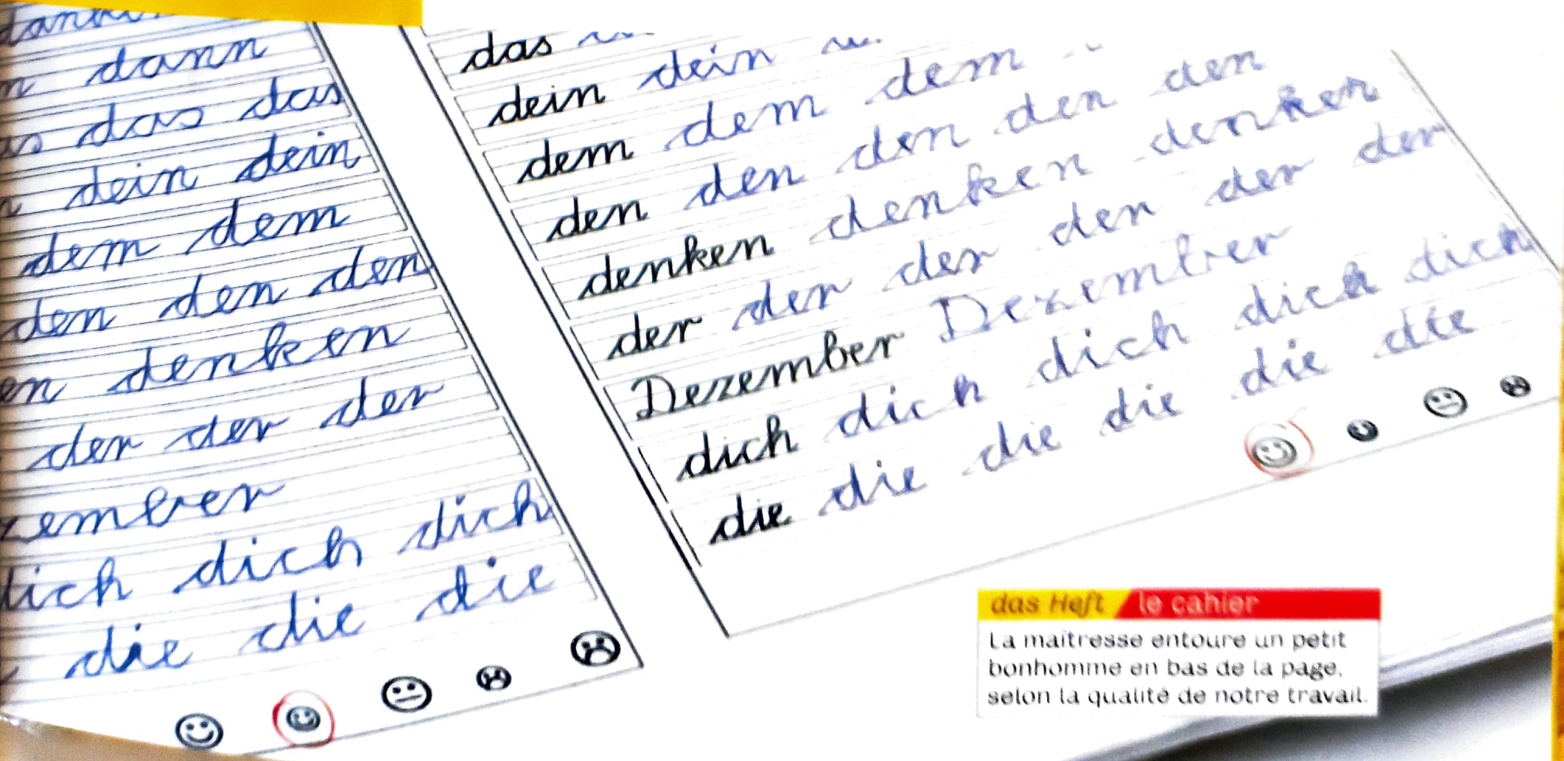 dann
das das
dein dein
dem dem
den den den
denken
der der der
dich dich
die die die
das
dein dein
dem dem dem
den den den den den
denken denken denken
der der der der der der
Dezember Dezember
dich dich dich dich dich
die die die die die die
das Heft le cahier
La maîtresse entoure un petit
bonhomme en bas de la page,
selon la qualité de notre travail.